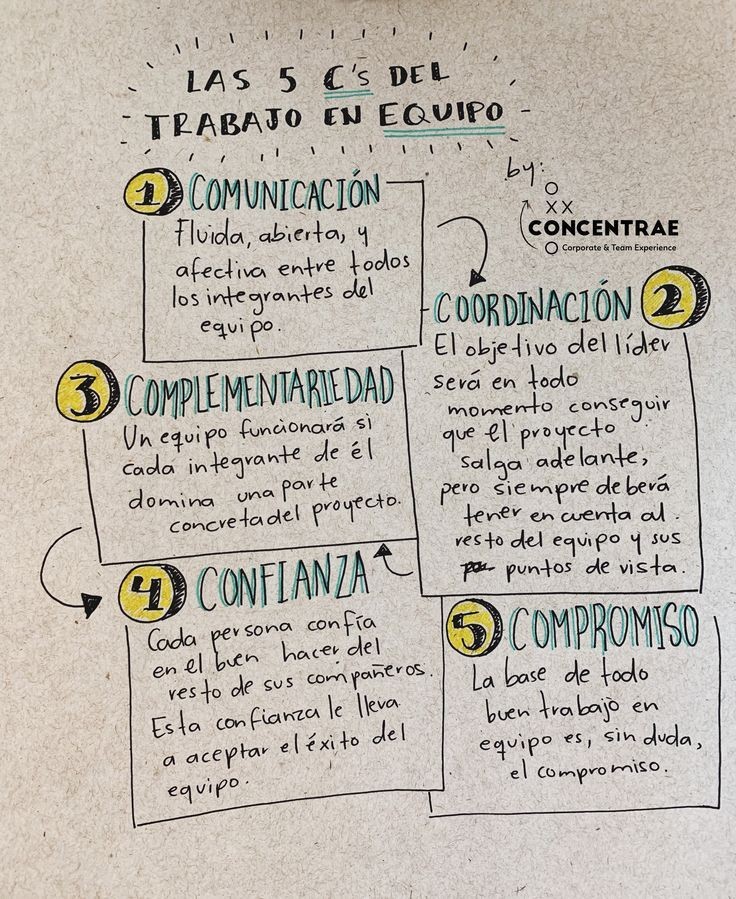 LAS 5 C's DEL
TRABAJO EN EQUIPO
by:
XX
CONCENTRAE
Corporate & Team Experience
1 COMUNICACIÓN
Fluida, abierta, y
afectiva entre todos
los integrantes del
equipo.
COORDINACIÓN 2
El objetivo del líder
será en todo
momento conseguir
que el proyecto
salga adelante,
pero siempre deberá
tener en cuenta al
resto del equipo y sus
puntos de vista.
3 COMPLEMENTARIEDAD
Un equipo funcionará si
cada integrante de él
domina una parte
concreta del proyecto.
4 CONFIANZA
Cada persona confía
en el buen hacer del
resto de sus compañeros.
Esta confianza le lleva
a aceptar el éxito del
equipo.
5 COMPROMISO
La base de todo
buen trabajo en
equipo es, sin duda,
el compromiso.